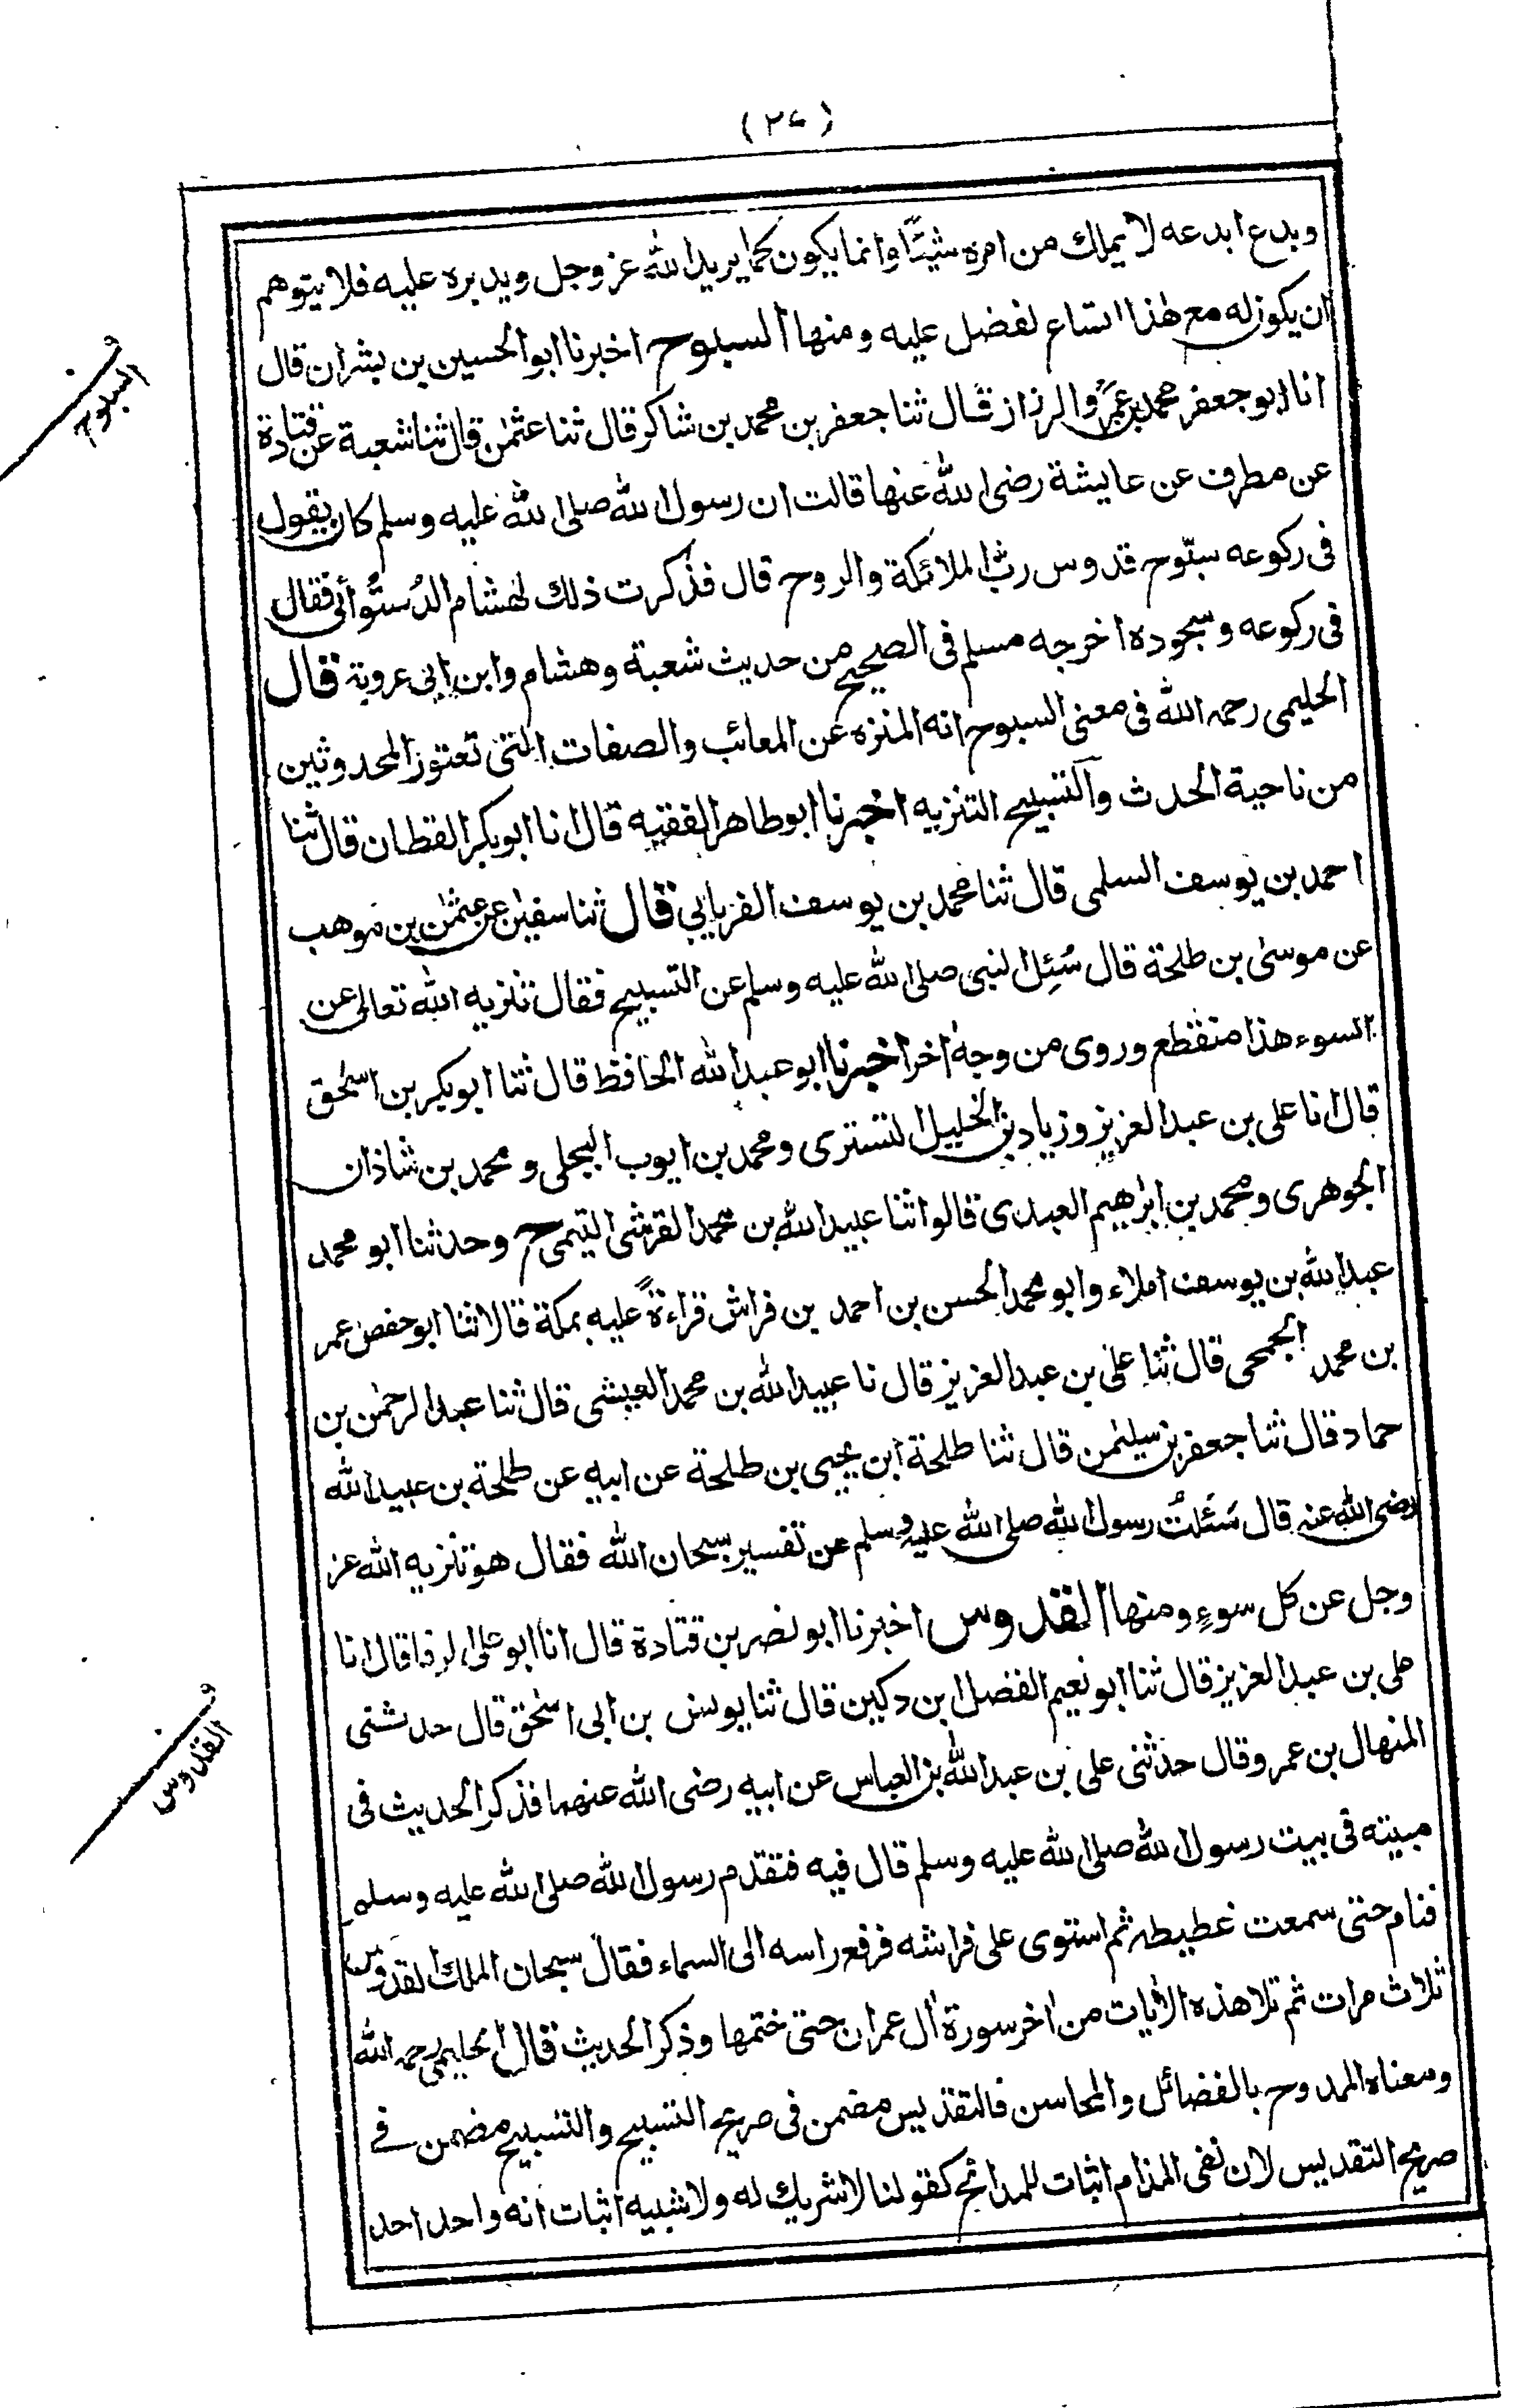 (٢٧)
وبدع ابدعه لا يملك من امره شيئًا وانما يكون كما يريد الله عز وجل ويدبره عليه فلا يتوهم
ان يكون له مع هذا اتساع لفضل عليه ومنها السبوح اخبرنا ابو الحسين بن بشران قال
انا ابو جعفر محمد بن عمرو الرزاز قال ثنا جعفر بن محمد بن شاكر قال ثنا عثمٰن قال ثنا شعبة عن قتادة
عن مطرف عن عايشة رضى الله عنها قالت ان رسول الله صلى الله عليه وسلم كان يقول
فى ركوعه سبّوح قدوس ربّ الملائكة والروح قال فذكرت ذلك لهشام الدُستُوأنى فقال
فى ركوعه وسجوده اخرجه مسلم فى الصحيح من حديث شعبة وهشام وابن ابى عروبة قال
الحليمى رحمه الله فى معنى السبوح انه المنزه عن المعائب والصفات التى تعتور المحدوثين
من ناحية الحدث والتسبيح التنزيه اخبرنا ابو طاهر الفقيه قال انا ابو بكر القطان قال ثنا
احمد بن يوسف السلمى قال ثنا محمد بن يوسف الفريابي قال ثنا سفيٰن عن عثمٰن بن موهب
عن موسىٰ بن طلحة قال سُئِل النبى صلى الله عليه وسلم عن التسبيح فقال تنزيه الله تعالى عن
السوء هذا منقطع وروى من وجه اٰخر اخبرنا ابو عبد الله الحافظ قال ثنا ابو بكر بن اسحٰق
قال انا على بن عبد العزيز وزياد بن الخليل التسترى ومحمد بن ايوب البجلى ومحمد بن شاذان
الجوهرى ومحمد بن ابرٰهيم العبدى قالوا ثنا عبيد الله بن محمد القرشى التيمى ح وحدثنا ابو محمد
عبد الله بن يوسف املاء وابو محمد الحسن بن احمد بن فراش قراءةً عليه بمكة قالا ثنا ابو حفص عمر
بن محمد الجمحى قال ثنا على بن عبد العزيز قال نا عبيد الله بن محمد العيشى قال ثنا عبد الرحمٰن بن
حماد قال ثنا جعفر بن سليمٰن قال ثنا طلحة ابن يحيى بن طلحة عن ابيه عن طلحة بن عبيد الله
رضى الله عنه قال سَئَلتُ رسول الله صلى الله عليه وسلم عن تفسير سبحان الله فقال هو تنزيه الله عز
وجل عن كل سوءٍ ومنها القدوس اخبرنا ابو نصر بن قتادة قال انا ابو على الرفا قال انا
على بن عبد العزيز قال ثنا ابو نعيم الفضل ابن دكين قال ثنا يونس بن ابى اسحٰق قال حدثنى
المنهال بن عمرو قال حدثنى على بن عبد الله بن العباس عن ابيه رضى الله عنهما فذكر الحديث فى
مبيته فى بيت رسول الله صلى الله عليه وسلم قال فيه فتقدم رسول الله صلى الله عليه وسلم
فنام حتى سمعت غطيطه ثم استوى على فراشه فرفع راسه الى السماء فقال سبحان الملك القدوس
ثلاث مرات ثم تلا هذه الاٰيات من اٰخر سورة اٰل عمران حتى ختمها وذكر الحديث قال الحليمى رحمه الله
ومعناه الممدوح بالفضائل والمحاسن فالتقديس مضمن فى صريح التسبيح والتسبيح مضمن فى
صريح التقديس لان نفى المذام اثبات للمدائح كقولنا لا شريك له ولا شبيه اثبات انه واحد احد
السبوح
القدوس